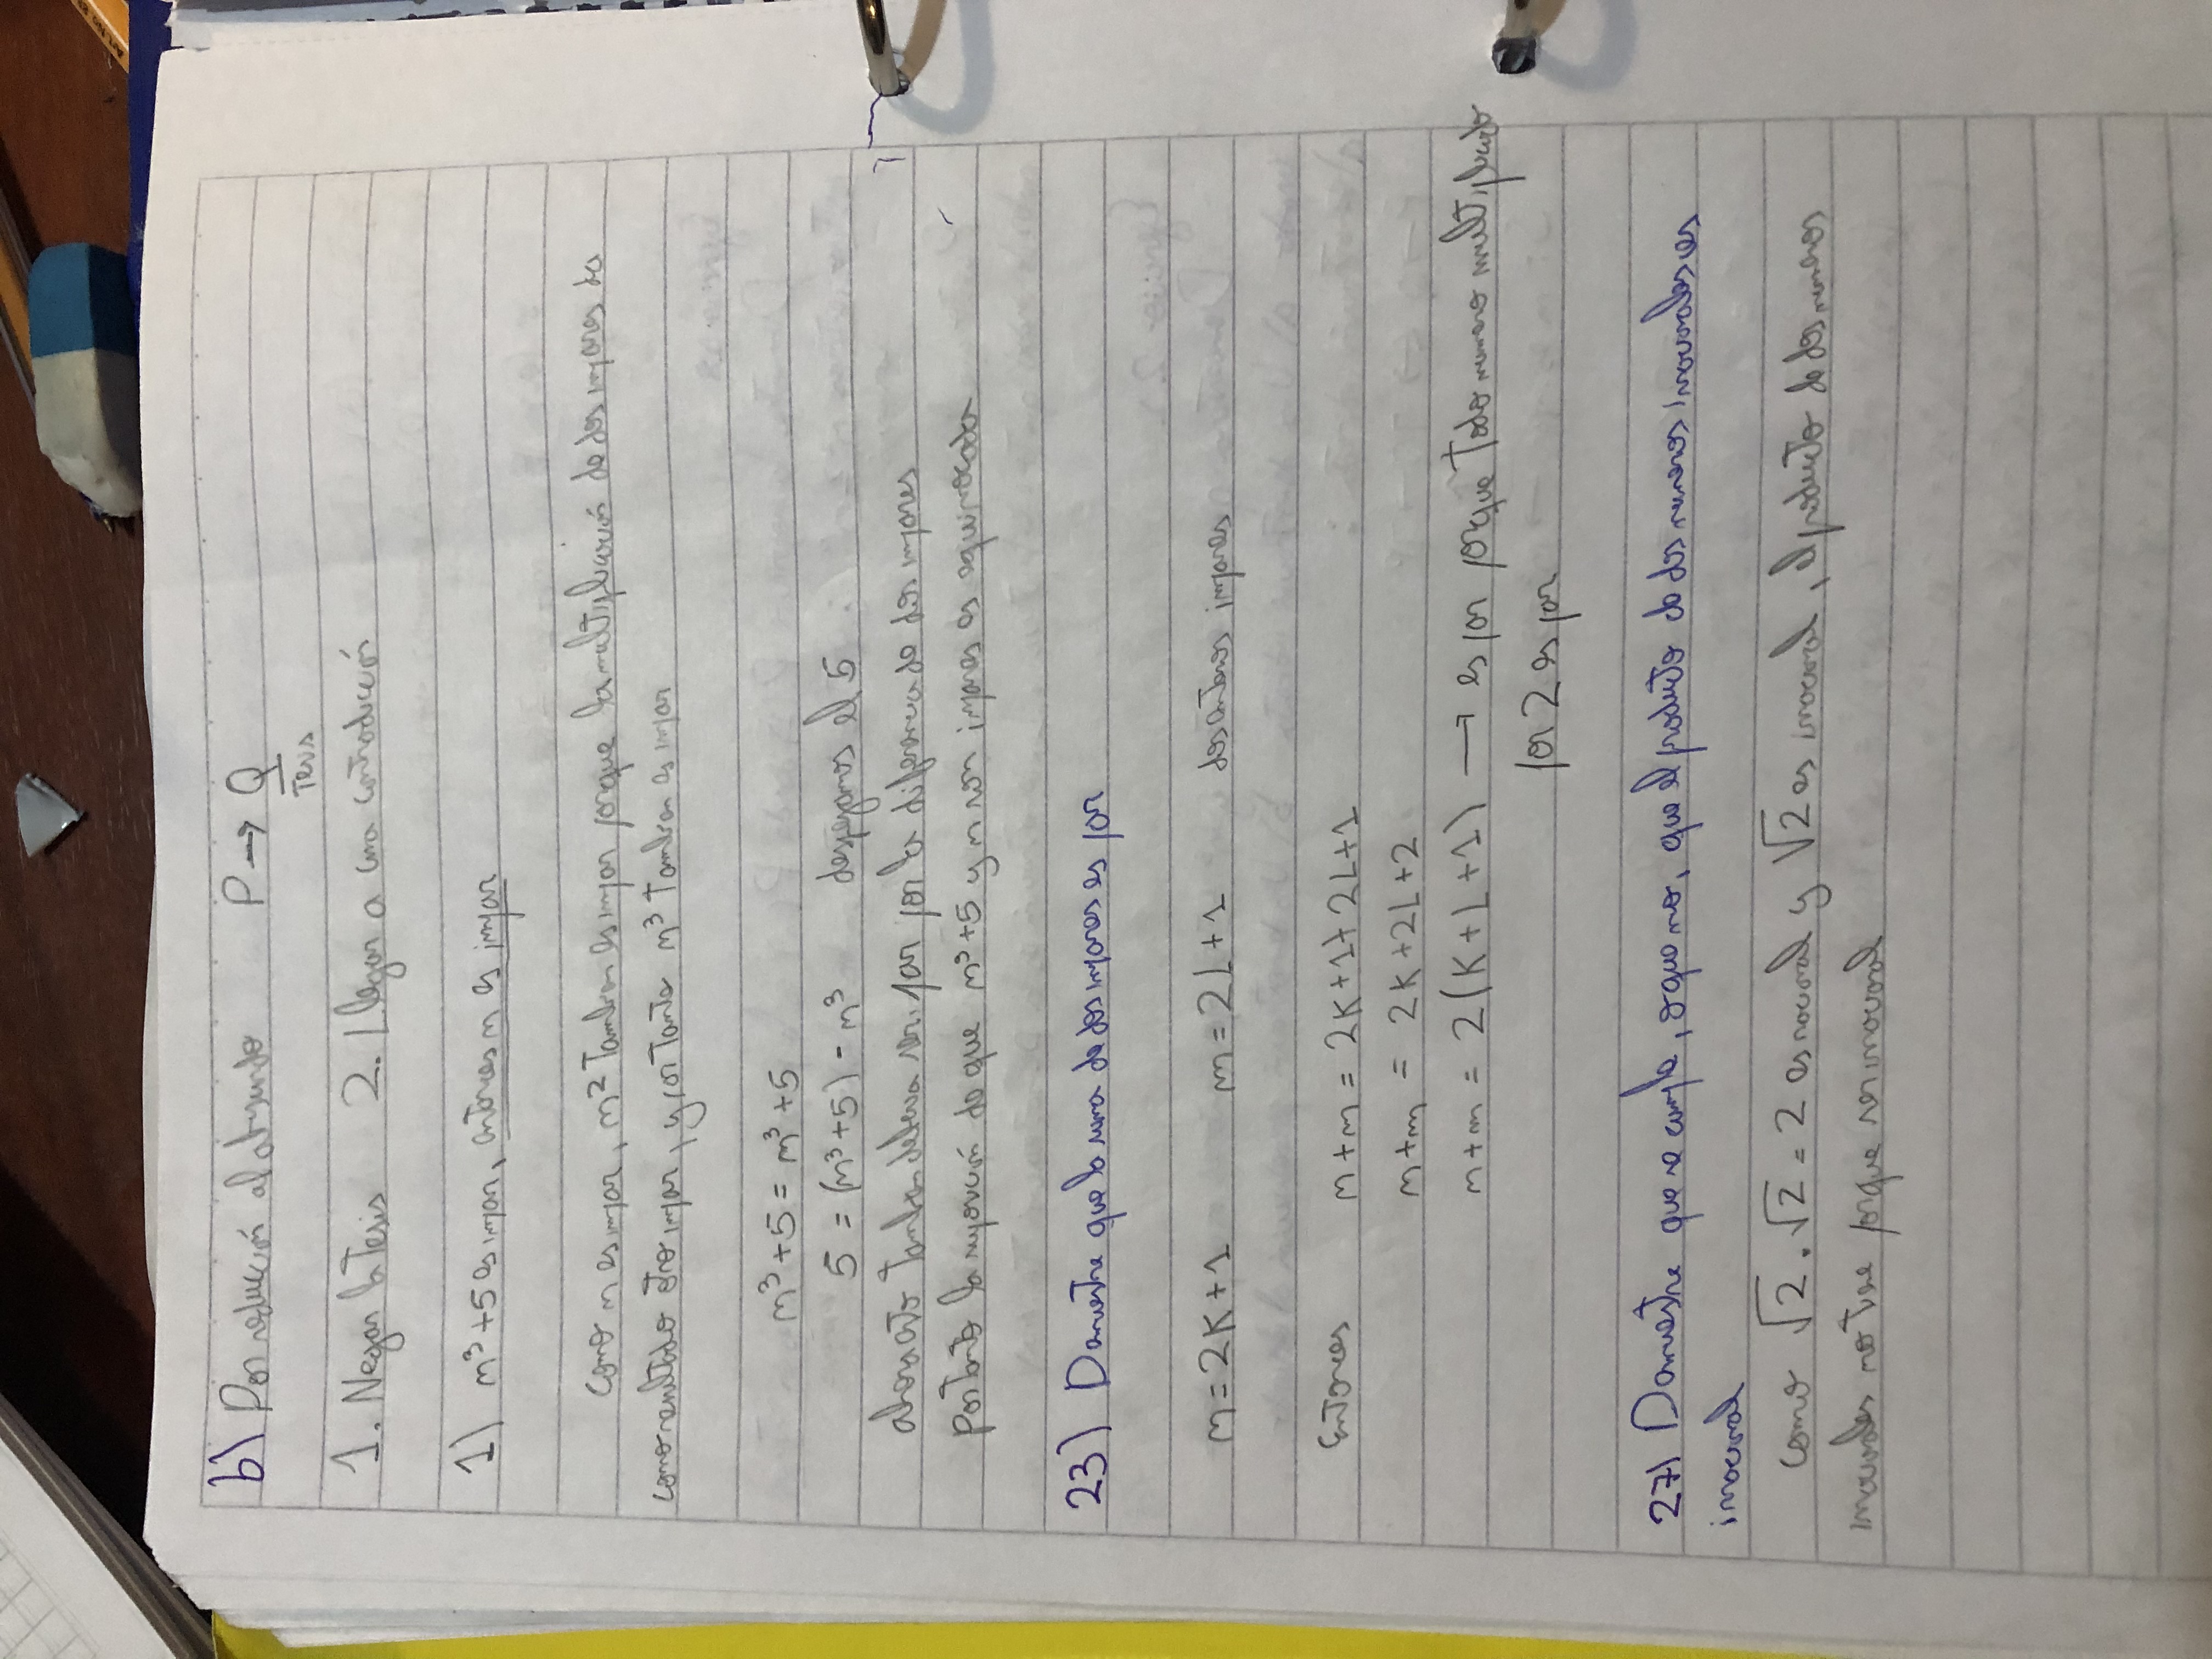 b) Por reducción al absurdo P → Q
Tesis
1. Negar la Tesis 2. Llegar a una contradicción
1) n³+5 es impar, entonces n es impar
como n es impar, n² Tambien es impar porque la multiplicación de dos impares da
como resultado otro impar, y por tanto n³ Tambien es impar
n³+5 = n³+5
5 = (n³+5) - n³ despejamos el 5
ahora esto tambien deberia ser par por la diferencia de dos impares
Por tanto la suposición de que n³+5 y n son impares es equivocada
23) Demuestre que la suma de dos impares es par
n = 2K+1 m = 2L+1 dos enteros impares
Entonces n+m = 2K+1+2L+1
n+m = 2K+2L+2
n+m = 2(K+L+1) → es par porque todo numero multiplicado
por 2 es par
27) Demuestre que se cumple, o que no, que el producto de dos numeros irracionales es
irracional
como √2 . √2 = 2 es racional y √2 es irracional, el producto de dos numeros
irracionales no tiene porque ser irracional